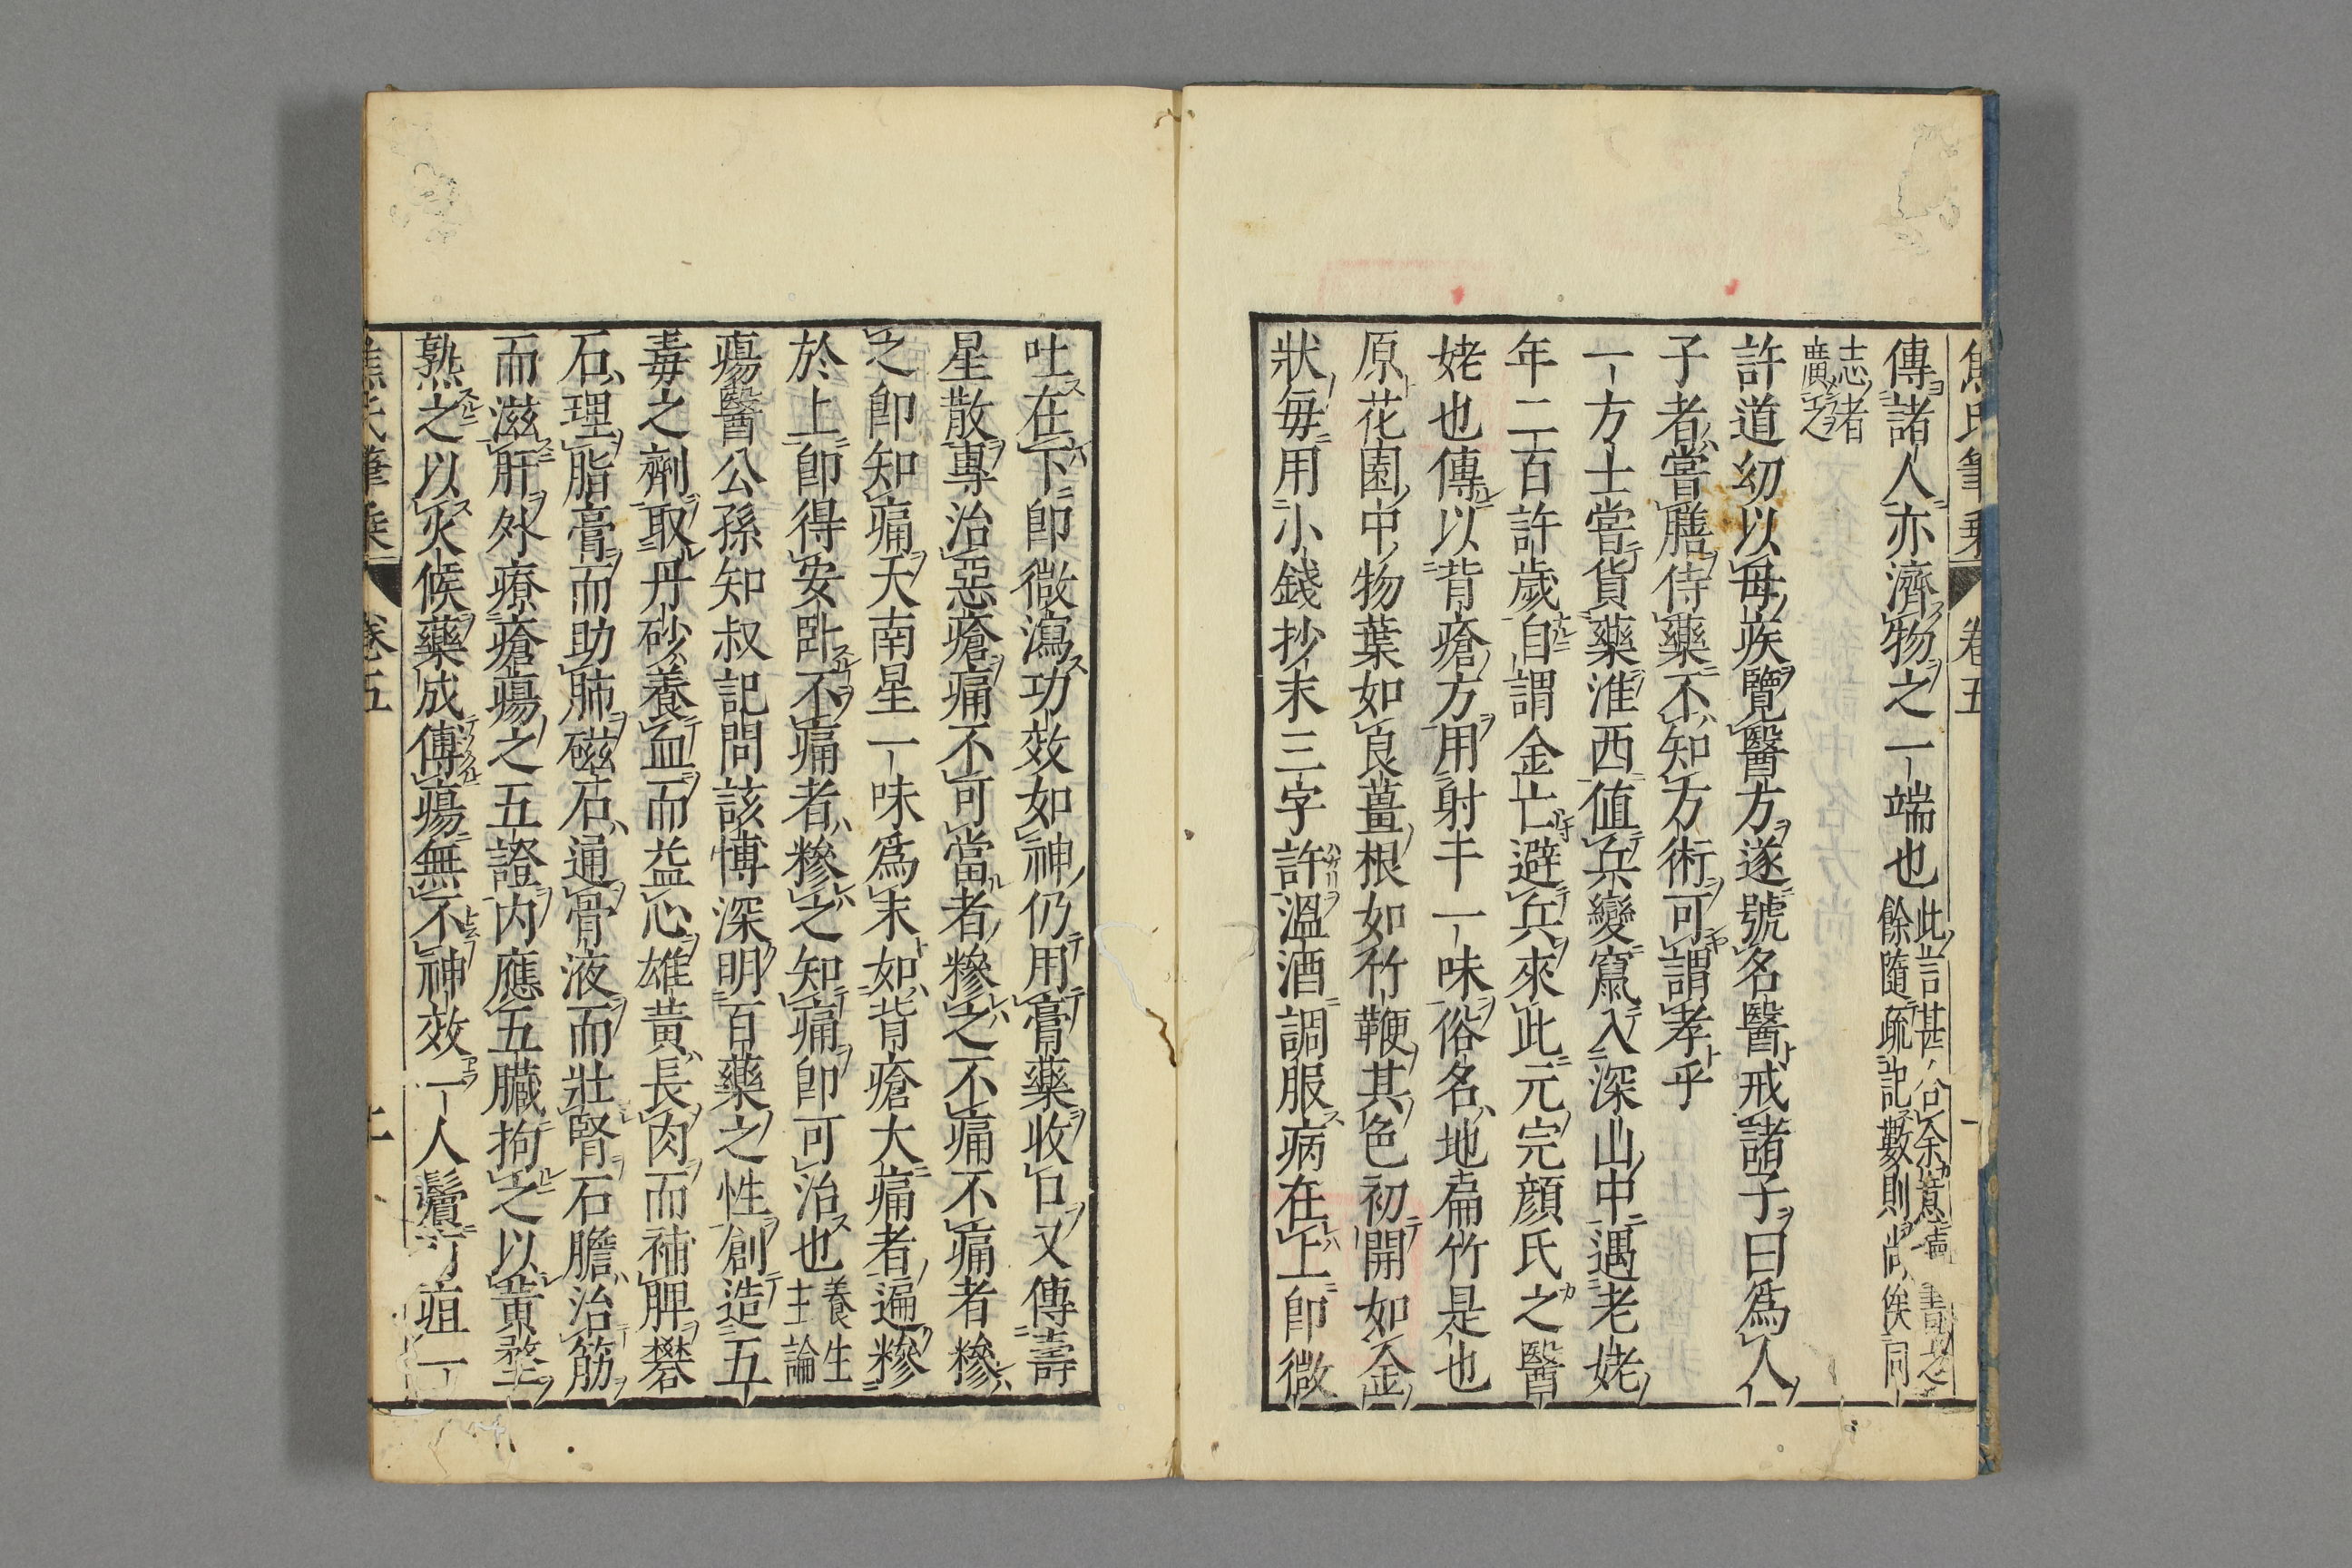 焦氏筆乗 卷五 一
傳諸人亦濟物之一端也此言甚公余意
書之
餘隨疏記數則尚俟同
志者
廣之
許道幼以母疾覽醫方遂號名醫戒諸子曰爲人
子者嘗膳侍藥不知方術可謂孝乎
一方士嘗貨藥淮西値兵變竄入深山中遇老姥
年二百許歲自謂金亡避兵來此元完顔氏之醫
姥也傳以背瘡方用射干一味俗名地扁竹是也
原花園中物葉如良薑根如竹鞭其色初開如金
狀毎用小錢抄末三字許溫酒調服病在上卽微
吐在下卽微瀉功效如神仍用膏藥收口又傳壽
星散專治惡瘡痛不可當者糝之不痛不痛者糝
之卽知痛天南星一味爲末如背瘡大痛者遍糝
於上卽得安卧不痛者糝之知痛卽可治也養生
主論
瘍醫公孫知叔記問該博深明百藥之性創造五
毒之劑取丹砂養血而益心雄黄長肉而補脾礬
石理脂膏而助肺磁石通骨液而壯腎石膽治筋
而滋肝外療瘡瘍之五證内應五臟拘之以黄堥
熟之以火候藥成傅瘍無不神效一人鬢疽一
焦氏筆乗 卷五